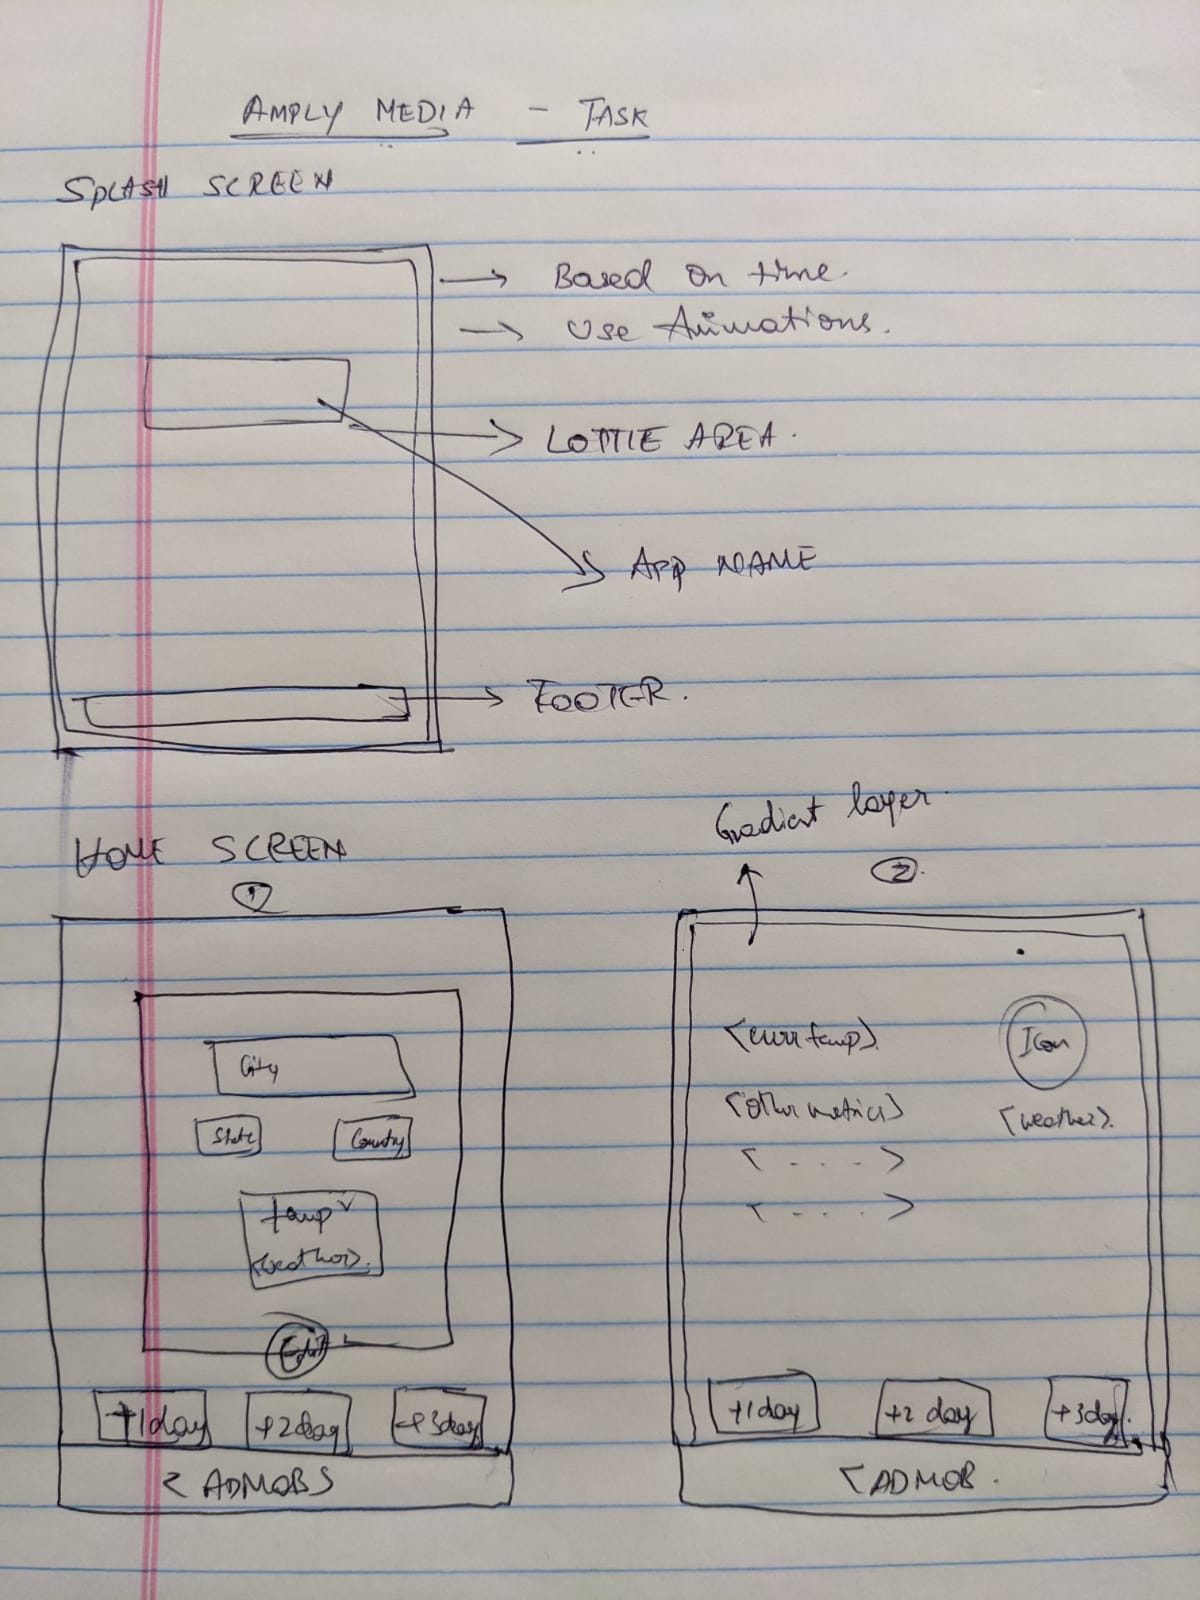 AMPLY MEDIA - TASK
SPLASH SCREEN
→ Based on time.
→ Use Animations.
→ LOTTIE AREA.
APP NAME
→ FOOTER.
Gradient layer.
HOME SCREEN
1
2
City
State
Country
temp
<weather>.
Edit
+1day
+2day
+3day
< ADMOBS
<curr temp>.
Icon
<other metrics>
<weather>.
< - . . - >
< - . . . >
+1day
+2 day
+3day.
< ADMOB.